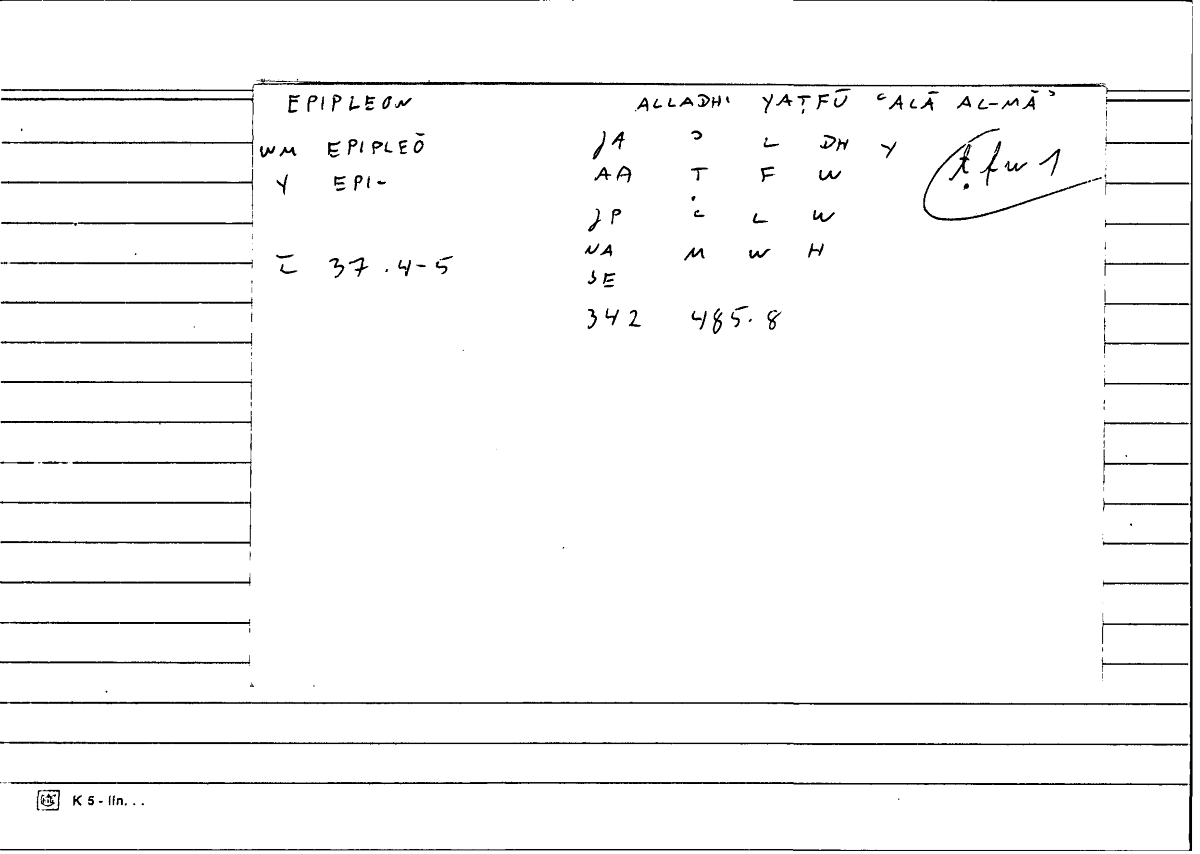 EPIPLEON ALLADHI YAṬFŪ ʿALĀ AL-MĀʾ
WM EPIPLEŌ JA ʾ L DH Y
Y EPI- AA Ṭ F W ṭfw 1
JP ʿ L W
NA M W H
37.4-5 SE
342 485.8
K 5 - lin...